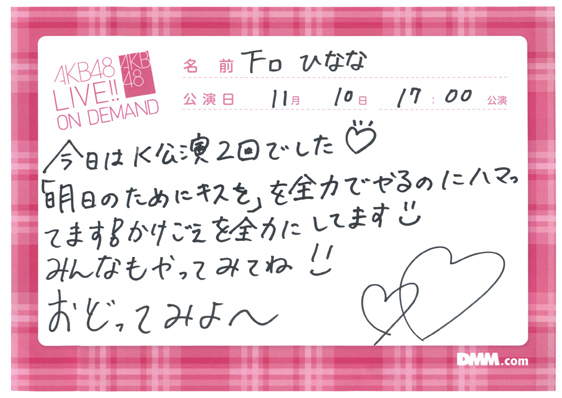 AKB48
LIVE!!
ON DEMAND
AKB
48
名前 下口 ひなな
公演日 11月 10日 17:00 公演
今日はK公演2回でした♡
「明日のためにキスを」を全力でやるのにハマっ
てます!!かけごえを全力にしてます
みんなもやってみてね!!
おどってみよ〜
DMM.com